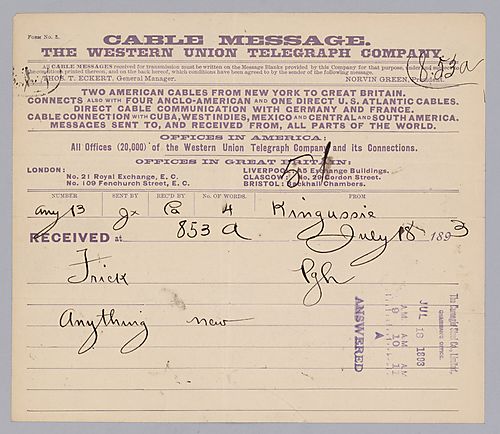 FORM No. 5.
CABLE MESSAGE.
THE WESTERN UNION TELEGRAPH COMPANY.
ALL CABLE MESSAGES received for transmission must be written on the Message Blanks provided by this Company for that purpose,
the conditions printed thereon, and on the back hereof, which conditions have been agreed to by the sender of the following message.
THOS. T. ECKERT, General Manager. NORVIN GREEN,
8.53a
TWO AMERICAN CABLES FROM NEW YORK TO GREAT BRITAIN.
CONNECTS ALSO WITH FOUR ANGLO-AMERICAN AND ONE DIRECT U.S. ATLANTIC CABLES.
DIRECT CABLE COMMUNICATION WITH GERMANY AND FRANCE.
CABLE CONNECTION WITH CUBA, WEST INDIES, MEXICO AND CENTRAL AND SOUTH AMERICA.
MESSAGES SENT TO, AND RECEIVED FROM, ALL PARTS OF THE WORLD.
OFFICES IN AMERICA:
All Offices (20,000) of the Western Union Telegraph Company and its Connections.
OFFICES IN GREAT BRITAIN:
LONDON: LIVERPOOL: Exchange Buildings.
No. 21 Royal Exchange, E. C. GLASGOW: No. 29 Gordon Street.
No. 109 Fenchurch Street, E. C. BRISTOL: Backhall Chambers.
51
NUMBER SENT BY REC'D BY No. OF WORDS. FROM
any 13 Jx Pa 4 Kingussie
RECEIVED at 853 a July 18 1893
Frick Pgh
Anything new
The Carnegie Steel Co., Limited.
CHAIRMAN'S OFFICE.
JUL 18 1893
AM AM AM
9 10 11
A
ANSWERED